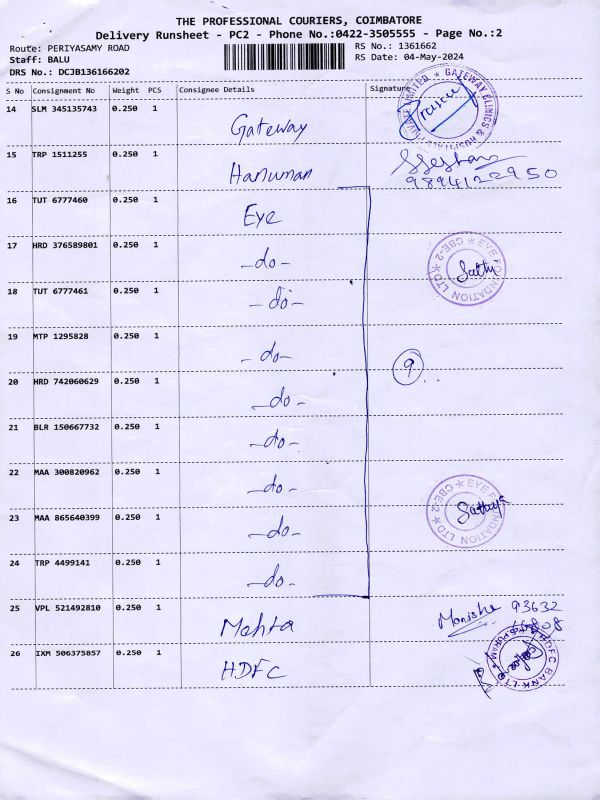 THE PROFESSIONAL COURIERS, COIMBATORE
Delivery Runsheet - PC2 - Phone No.:0422-3505555 - Page No.:2
Route: PERIYASAMY ROAD
Staff: BALU
DRS No.: DCJB136166202
RS No.: 1361662
RS Date: 04-May-2024
S No Consignment No Weight PCS Consignee Details Signature
14 SLM 345135743 0.250 1 Gateway
GATEWAY CLINICS &
15 TRP 1511255 0.250 1 Hanuman
9894122950
16 TUT 6777460 0.250 1 Eye
17 HRD 376589801 0.250 1 -do-
EYE FOUNDATION LTD CBE-2
18 TUT 6777461 0.250 1 -do-
19 MTP 1295828 0.250 1 -do-
9
20 HRD 742060629 0.250 1 -do-
21 BLR 150667732 0.250 1 -do-
22 MAA 300820962 0.250 1 -do-
EYE FOUNDATION LTD CBE-2
Sathya
23 MAA 865640399 0.250 1 -do-
24 TRP 4499141 0.250 1 -do-
25 VPL 521492810 0.250 1 Mehta
Manisha 93632
26 IXM 506375857 0.250 1 HDFC
HDFC BANK LTD